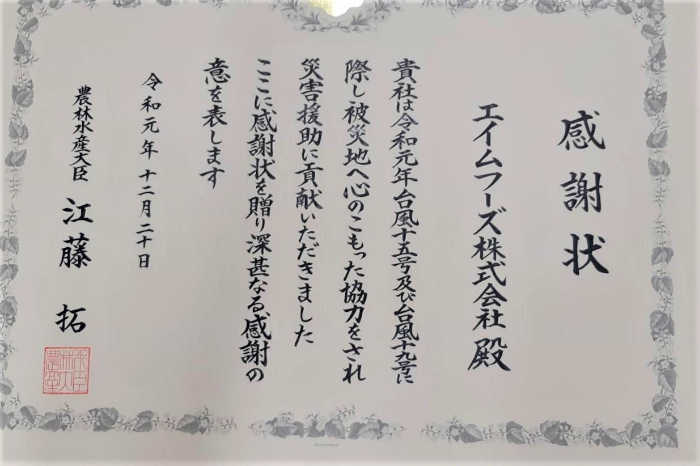 感謝状
エイムフーズ株式会社 殿
貴社は令和元年台風十五号及び台風十九号に
際し被災地へ心のこもった協力をされ
災害援助に貢献いただきました
ここに感謝状を贈り深甚なる感謝の
意を表します
令和元年十二月二十日
農林水産大臣 江藤 拓